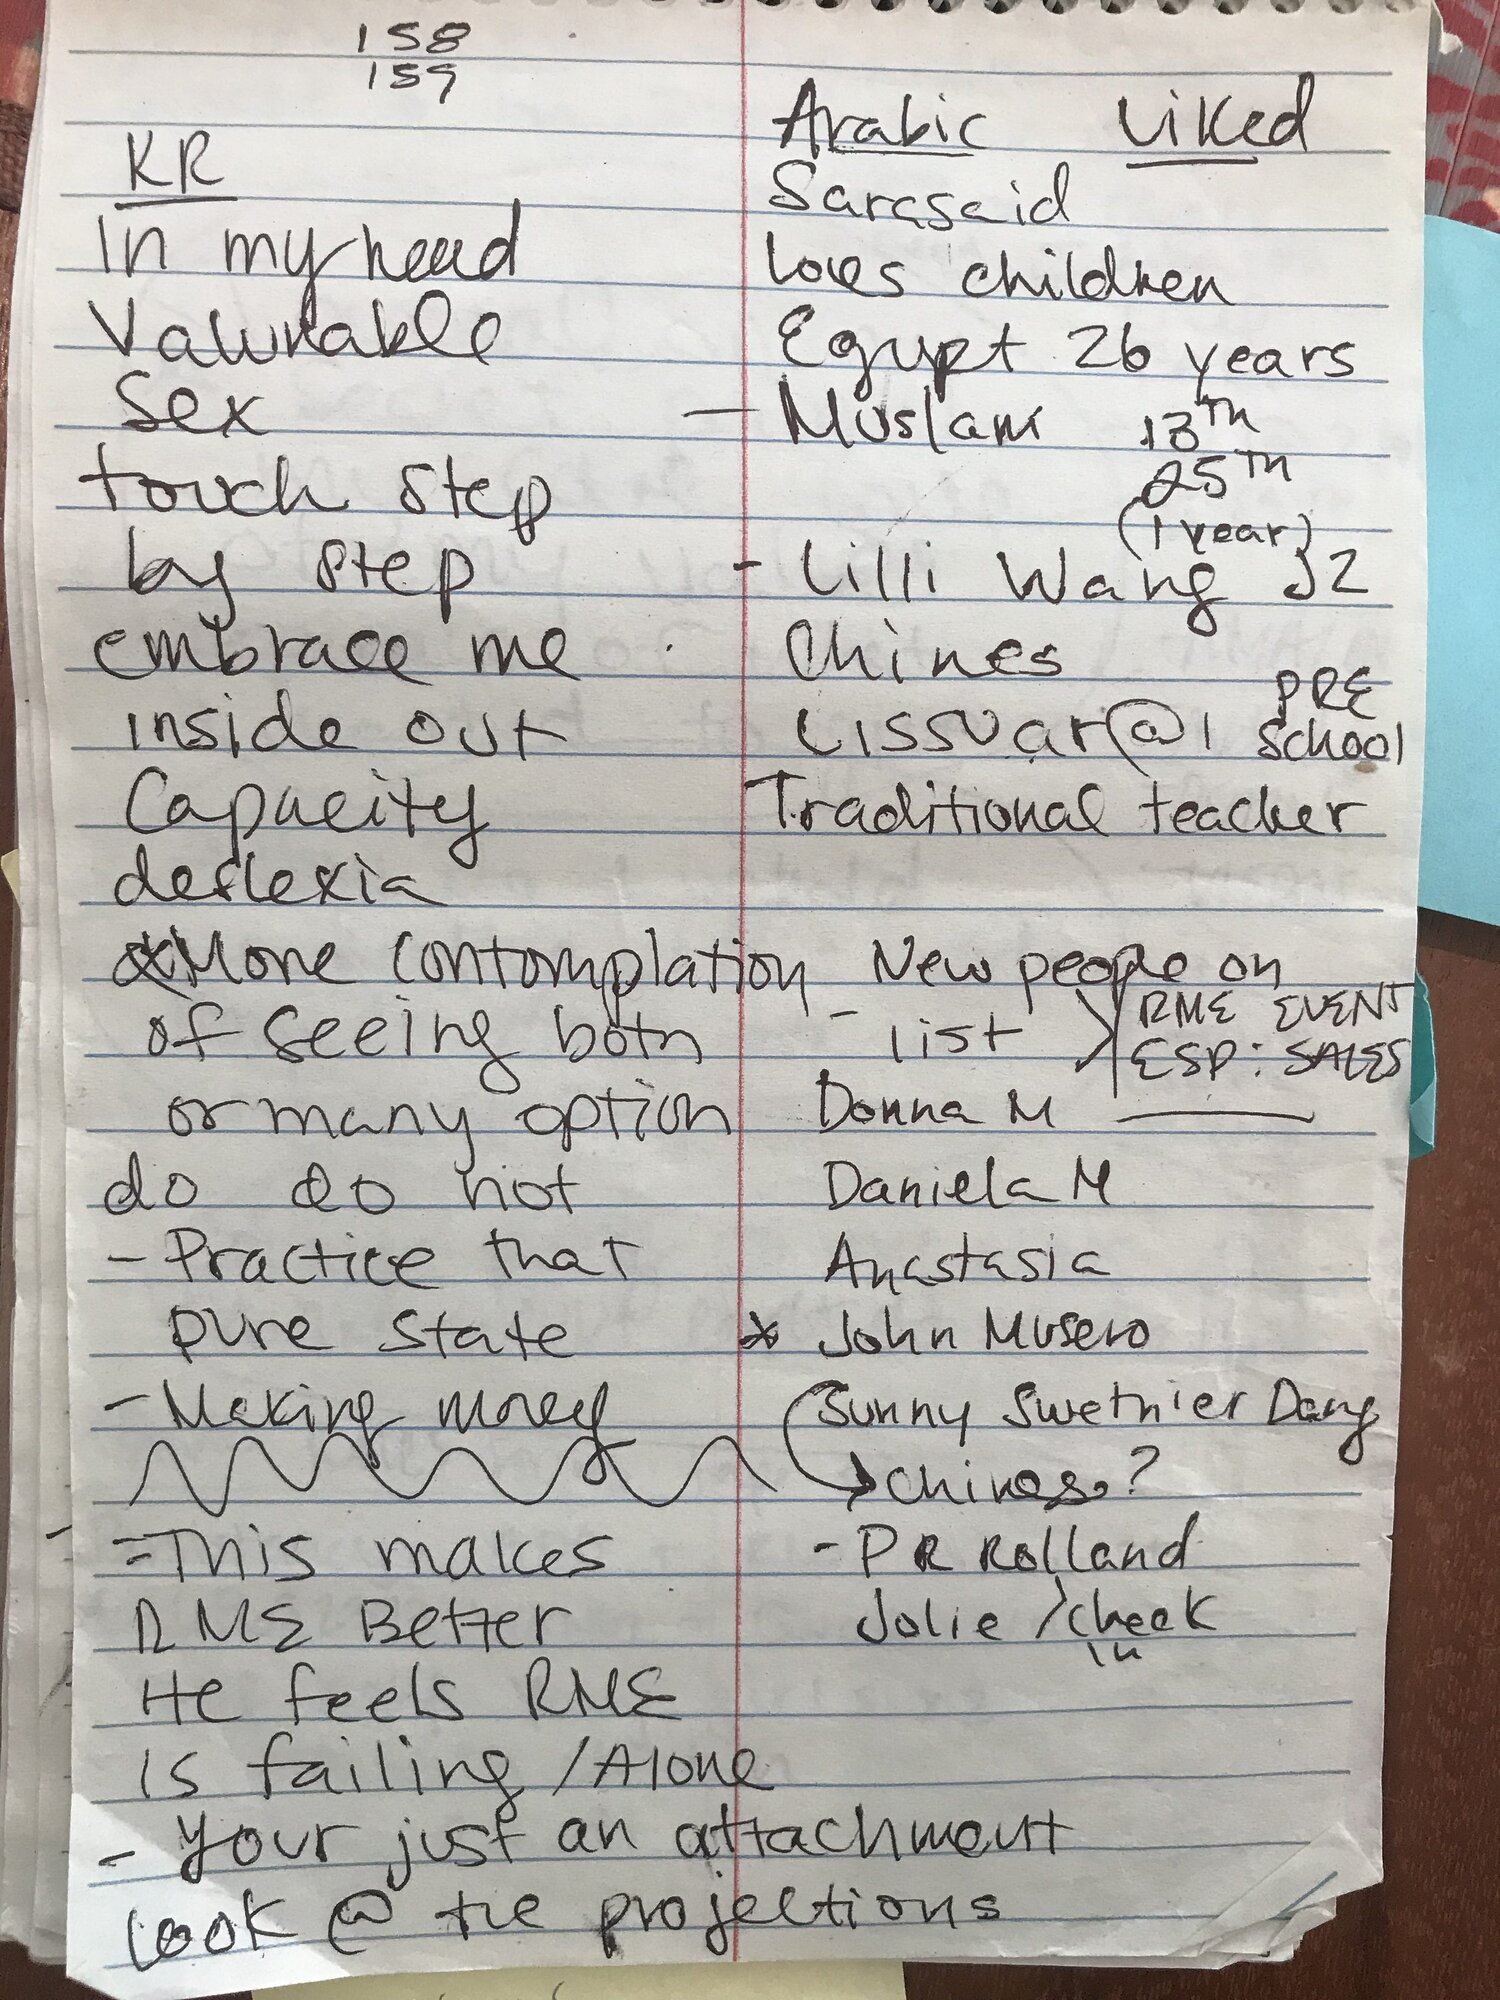 158
159
KR
In my head
Valurable
Sex
touch step
by step
embrace me
inside out
Capacity
deslexia
More contomplation
of seeing both
or many option
do do not
- Practice that
pure state
- Making money
=This makes
RME Better
He feels RME
Is failing /Alone
- Your just an attachment
look @ the projections
Arabic Liked
Sarasaid
loves children
Egupt 26 years
- Muslam 13th
25th
(1 year)
- Lilli Wang J2
Chines
PRE
@1 School
Traditional teacher
New people on
- list > RME EVENT
ESP: SALES
Donna M
Daniela M
Anastasia
* John Musero
Sunny Swethier Dang
→ Chines?
- PR Rolland
Jolie / check
in